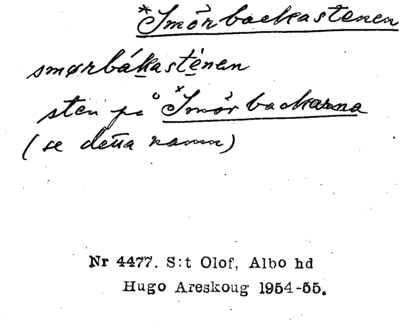 *Smörbackastenen
smørbákastènen
sten på *Smörbackarna
(se detta namn)
Nr 4477. S:t Olof, Albo hd
Hugo Areskoug 1954-55.